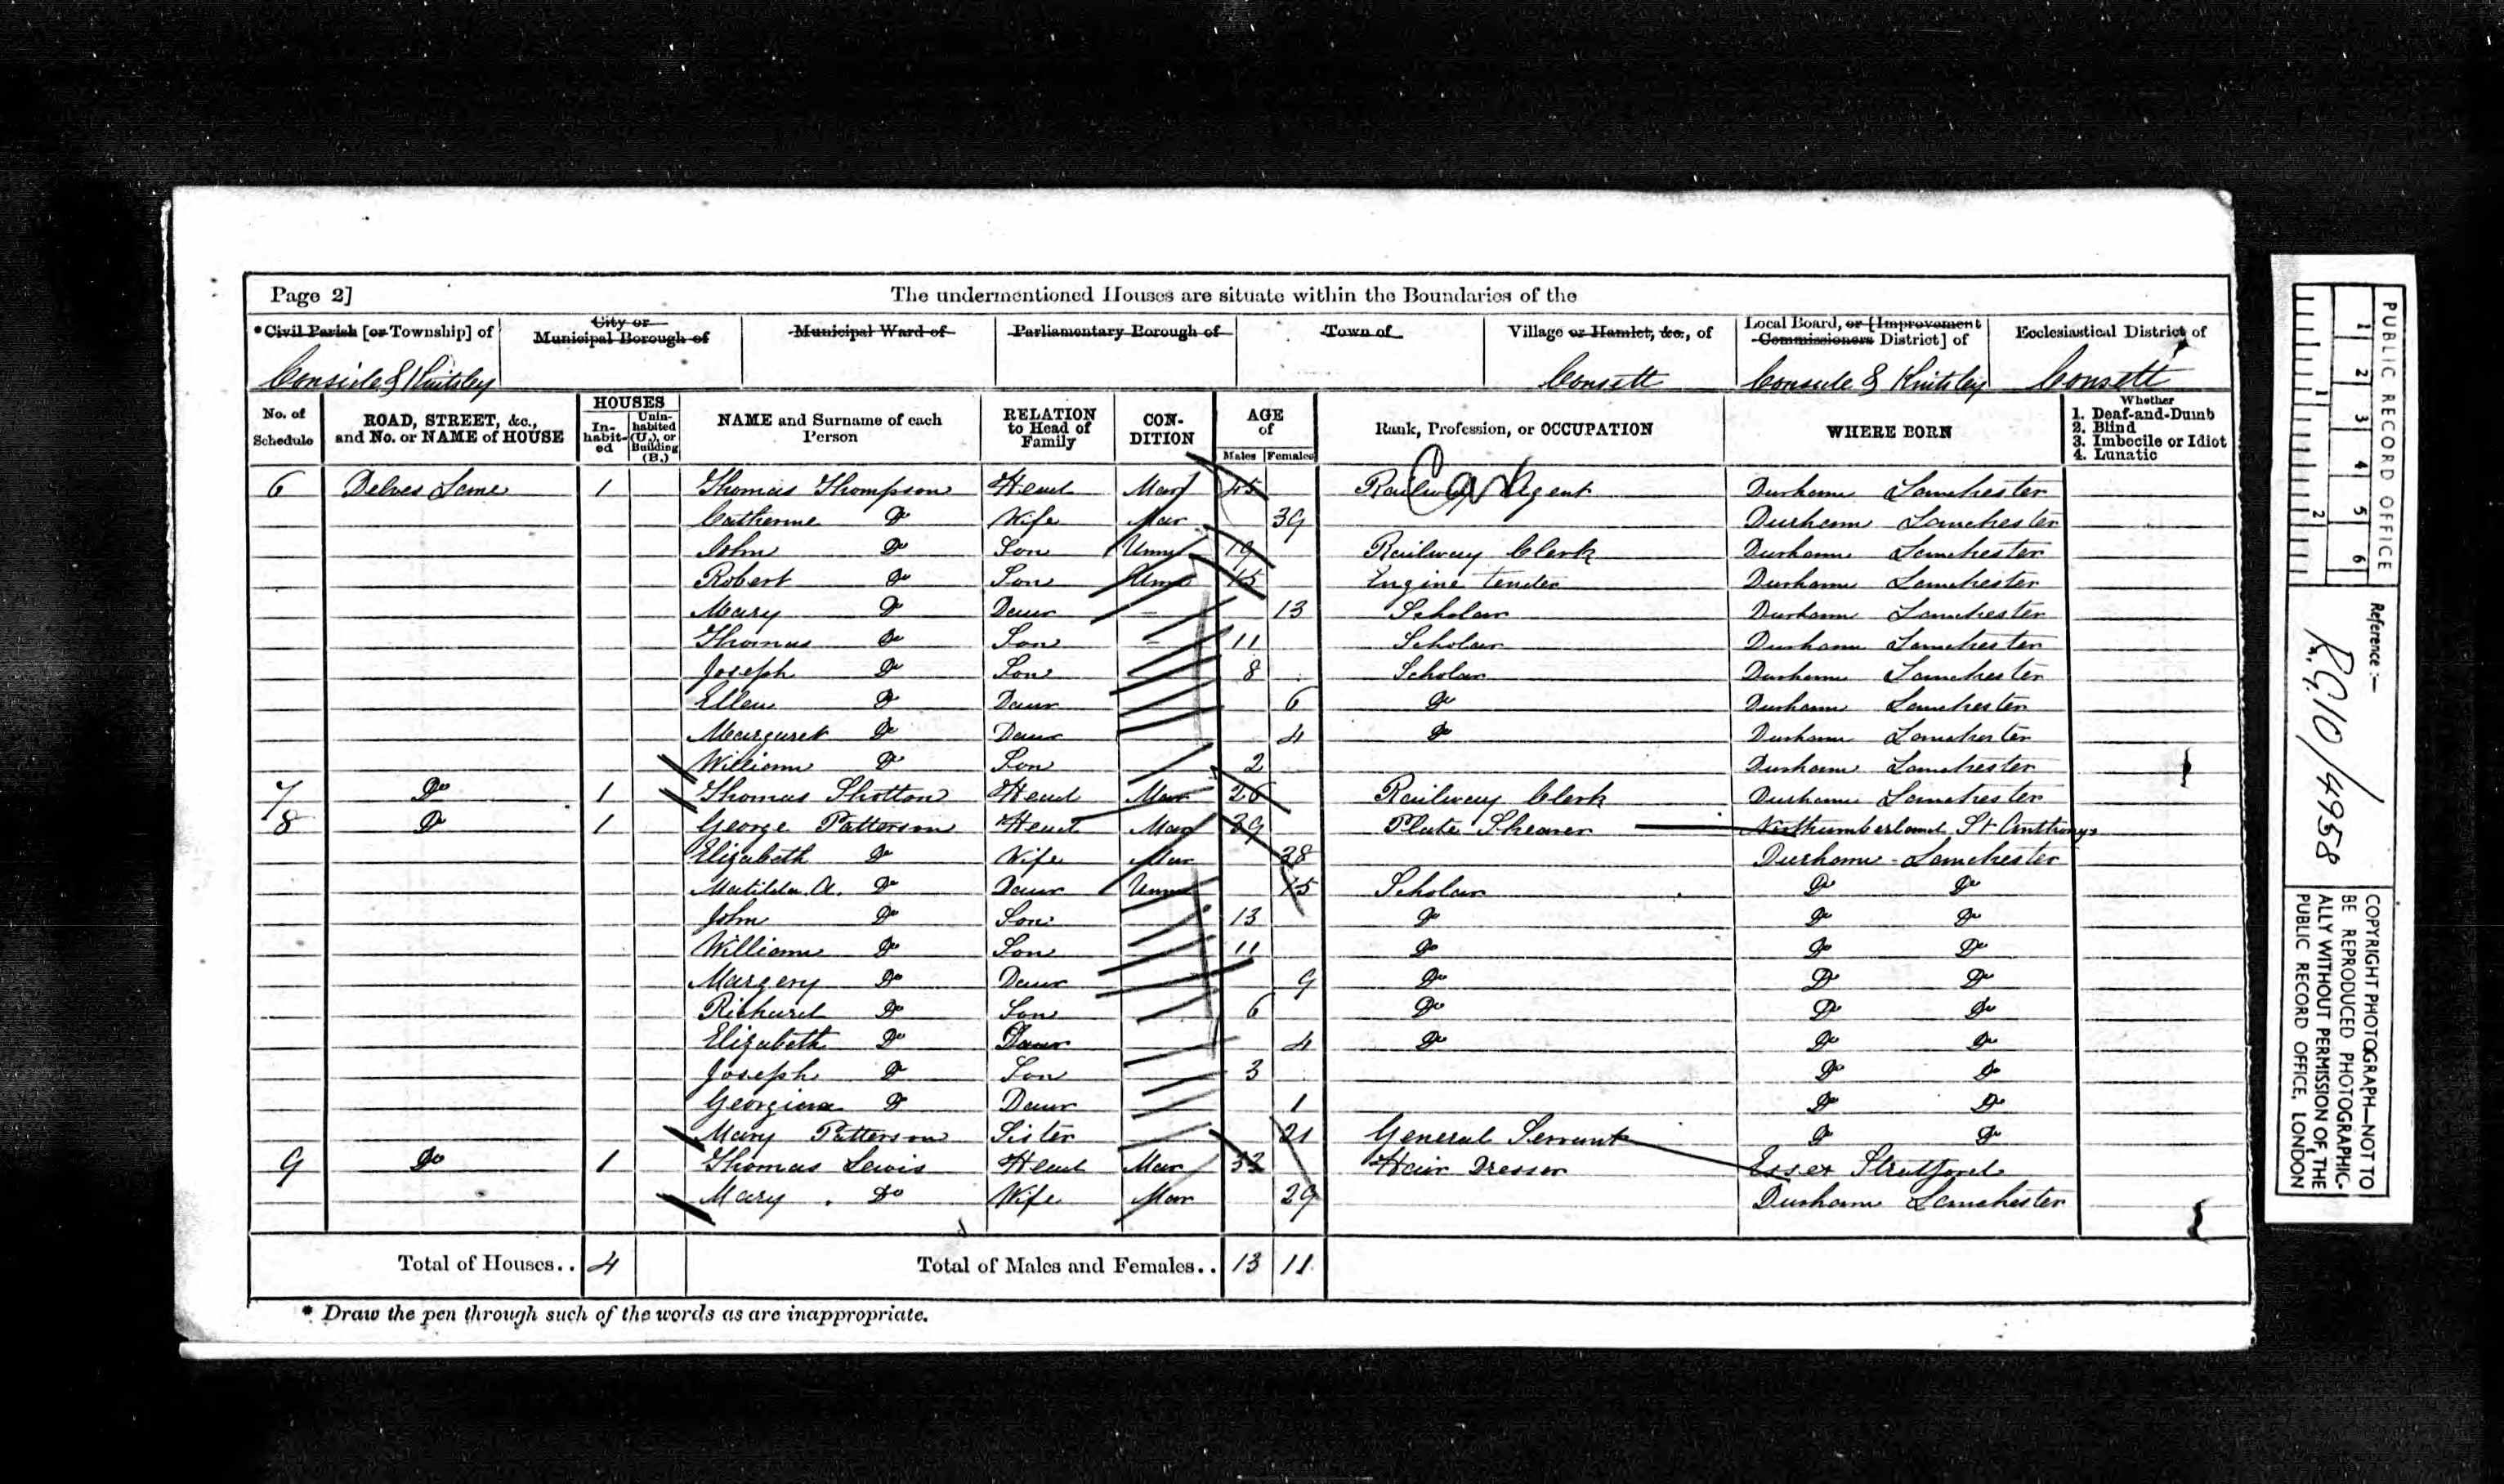 Page 2] The undermentioned Houses are situate within the Boundaries of the
*Civil Parish [or Township] of City or Municipal Borough of Municipal Ward of Parliamentary Borough of Town of Village or Hamlet, &c., of Local Board, or [Improvement Commissioners District] of Ecclesiastical District of
& Knitsley Consett & Knitsley Consett
No. of Schedule ROAD, STREET, &c., and No. or NAME of HOUSE HOUSES Inhabited Uninhabited (U.), or Building (B.) NAME and Surname of each Person RELATION to Head of Family CONDITION AGE of Males Females Rank, Profession, or OCCUPATION WHERE BORN Whether 1. Deaf-and-Dumb 2. Blind 3. Imbecile or Idiot 4. Lunatic
6 Delves Lane 1 Thomas Thompson Head Mar 45 Railway Agent Durham Lanchester
Catherine Do Wife Mar 39 Durham Lanchester
John Do Son Unm 19 Railway Clerk Durham Lanchester
Robert Do Son Unm 15 Engine tender Durham Lanchester
Mary Do Daur - 13 Scholar Durham Lanchester
Thomas Do Son - 11 Scholar Durham Lanchester
Joseph Do Son 8 Scholar Durham Lanchester
Ellen Do Daur 6 Do Durham Lanchester
Margaret Do Daur 4 Do Durham Lanchester
William Do Son 2 Durham Lanchester
7 Do 1 Thomas Shotton Head Mar 26 Railway Clerk Durham Lanchester
8 Do 1 George Patterson Head Mar 39 Plate Shearer Northumberland St Anthonys
Elizabeth Do Wife Mar 38 Durham - Lanchester
Matilda A. Do Daur Unm 15 Scholar Do Do
John Do Son 13 Do Do Do
William Do Son 11 Do Do Do
Margery Do Daur 9 Do Do Do
Richard Do Son 6 Do Do Do
Elizabeth Do Daur 4 Do Do Do
Joseph Do Son 3 Do Do
Georgina Do Daur 1 Do Do
Mary Patterson Sister 21 General Servant Do Do
9 Do 1 Thomas Lewis Head Mar Hair Dresser Essex Stratford
Mary Do Wife Mar 29 Durham Lanchester
Total of Houses.. 4 Total of Males and Females.. 13 11
* Draw the pen through such of the words as are inappropriate.
PUBLIC RECORD OFFICE
1 2 3 4 5 6
1 2
Reference :-
R.G. 10/4958
COPYRIGHT PHOTOGRAPH—NOT TO
BE REPRODUCED PHOTOGRAPHIC-
ALLY WITHOUT PERMISSION OF THE
PUBLIC RECORD OFFICE, LONDON